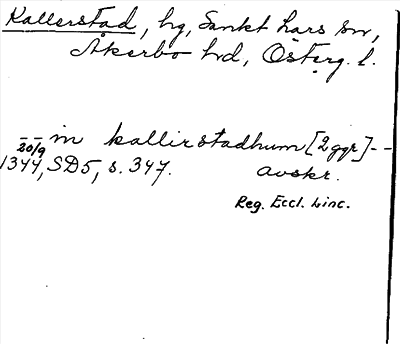 Kallerstad, hg, Sankt Lars sn,
Åkerbo hd, Österg. l.
-- in kallirstadhum [2 ggr] --
20/9 1344, SD5, s. 347. avskr.
Reg. Eccl. Linc.